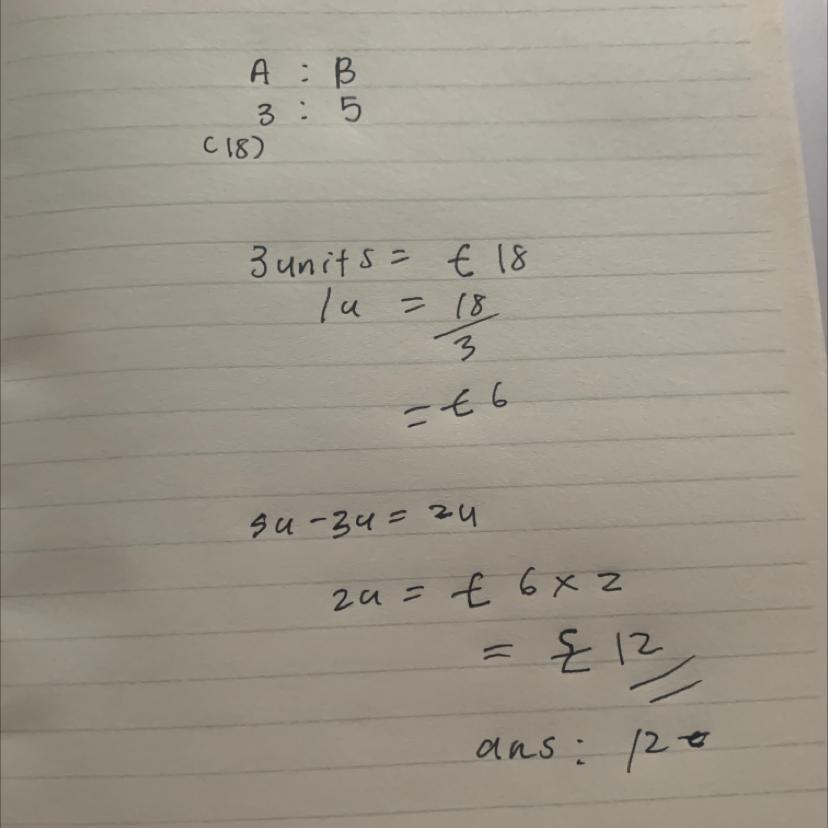 A : B
3 : 5
(18)
3 units = £ 18
1u = 18
3
= £ 6
5u - 3u = 2u
2u = £ 6 × 2
= £ 12
ans: 12